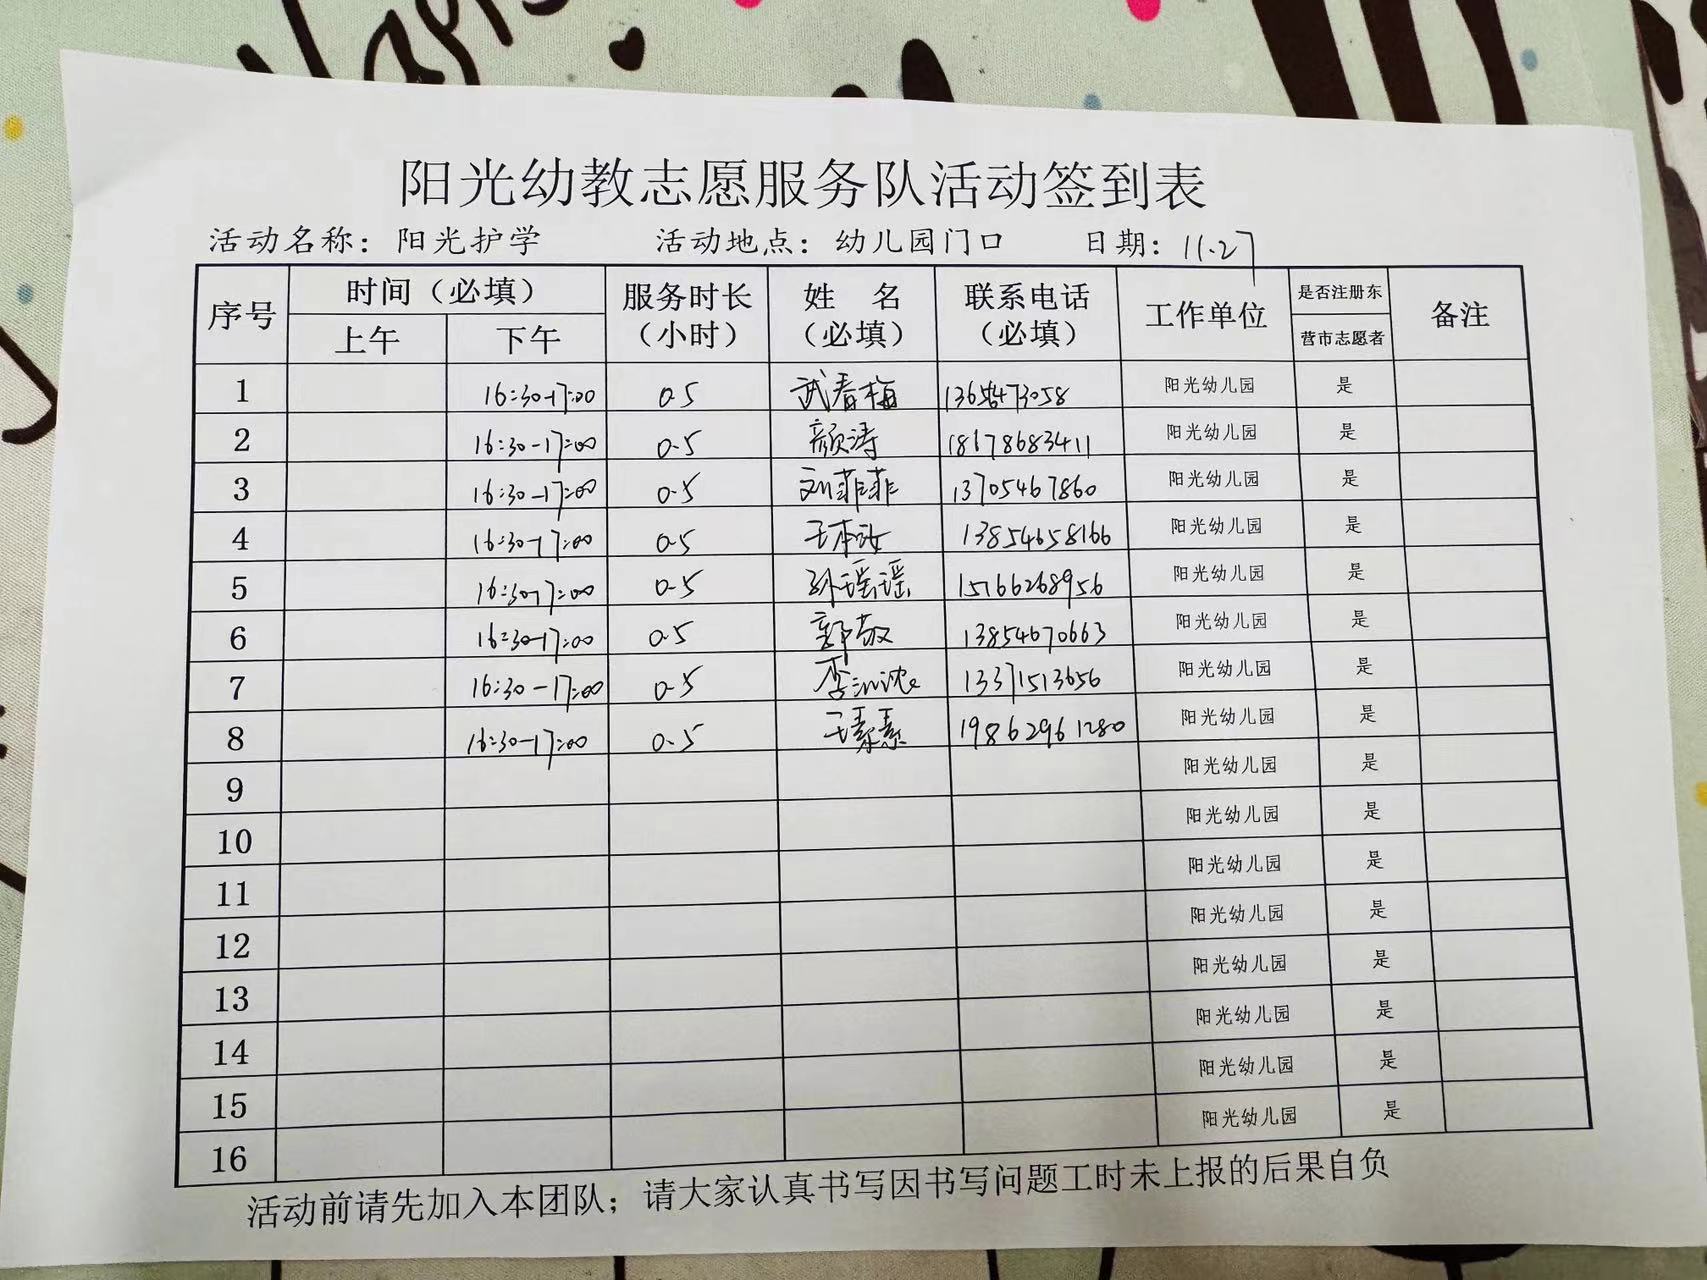 阳光幼教志愿服务队活动签到表
活动名称：阳光护学 活动地点：幼儿园门口 日期：11.27
序号 时间（必填） 服务时长（小时） 姓 名（必填） 联系电话（必填） 工作单位 是否注册东营市志愿者 备注
上午 下午
1 16:30-17:00 0.5 武春梅 阳光幼儿园 是
2 16:30-17:00 0.5 颜涛 18678683411 阳光幼儿园 是
3 16:30-17:00 0.5 刘菲菲 13705467860 阳光幼儿园 是
4 16:30-17:00 0.5 13854658166 阳光幼儿园 是
5 16:30-17:00 0.5 孙瑶瑶 15166268956 阳光幼儿园 是
6 16:30-17:00 0.5 郭敬 13854670663 阳光幼儿园 是
7 16:30-17:00 0.5 13371513656 阳光幼儿园 是
8 16:30-17:00 0.5 王素素 19862961280 阳光幼儿园 是
9 阳光幼儿园 是
10 阳光幼儿园 是
11 阳光幼儿园 是
12 阳光幼儿园 是
13 阳光幼儿园 是
14 阳光幼儿园 是
15 阳光幼儿园 是
16 阳光幼儿园 是
活动前请先加入本团队；请大家认真书写因书写问题工时未上报的后果自负